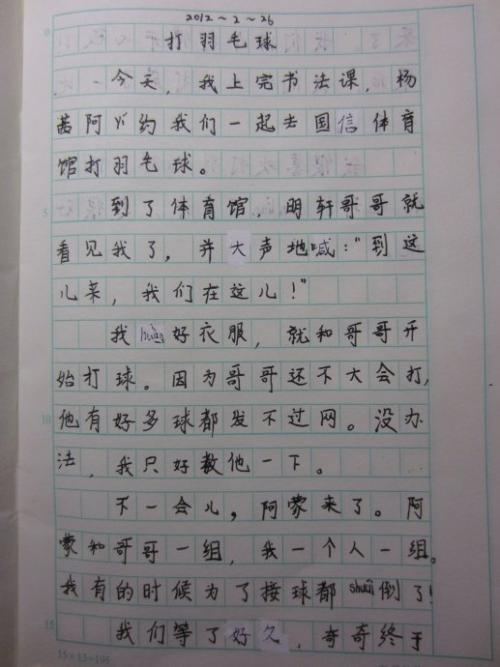 2012~2~26
打羽毛球
今天，我上完书法课，杨
茜阿丫约我们一起去国信体育
馆打羽毛球。
到了体育馆，明轩哥哥就
看见我了，并大声地喊："到这
儿来，我们在这儿！"
我huàn好衣服，就和哥哥开
始打球。因为哥哥还不大会打，
他有好多球都发不过网。没办
法，我只好教他一下。
不一会儿，阿蒙来了。阿
蒙和哥哥一组，我一个人一组。
我有的时候为了接球都shuāi倒了！
我们等了好久，奇奇终于
15×13=195